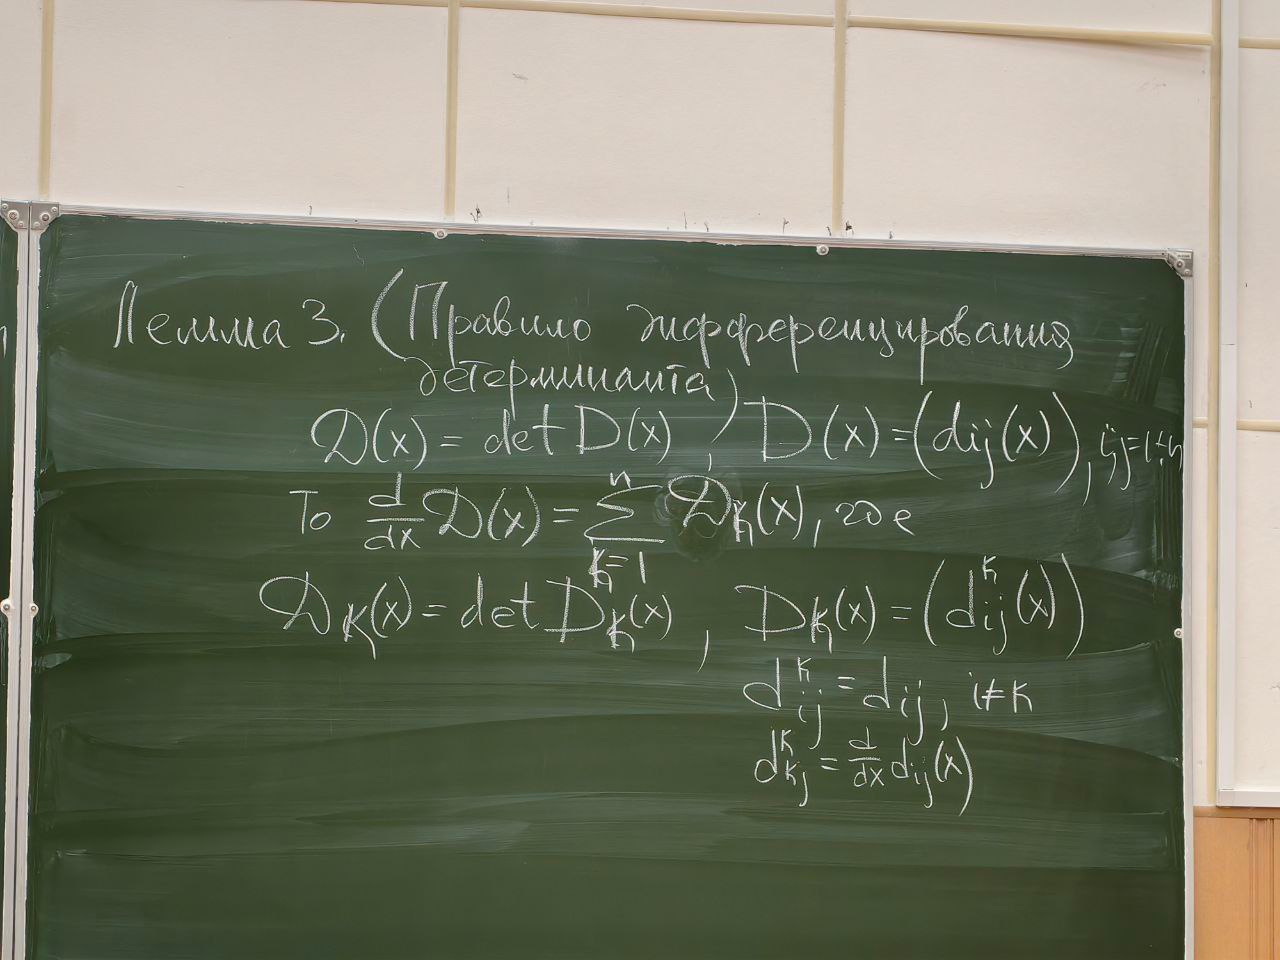 Лемма 3. (Правило дифференцирования
детерминанта)
𝒟(x) = det D(x), D(x) = (dij(x)), i,j=1÷n
То d/dx 𝒟(x) = ∑_{k=1}^{n} 𝒟_k(x), где
𝒟_k(x) = det D_k(x), D_k(x) = (d_{ij}^{k}(x))
d_{ij}^{k} = d_{ij}, i≠k
d_{kj}^{k} = d/dx d_{ij}(x)